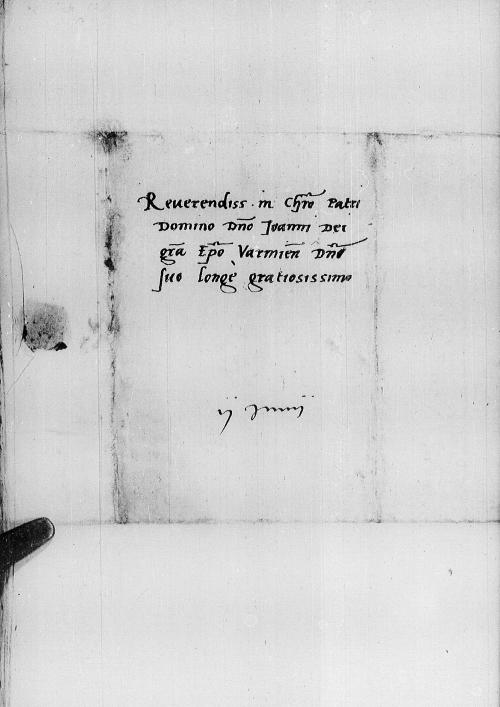 Reverendiss. in Chr̃o Patri
Domino Dño Joanni Dei
gr̃a Ep̃o Varmieñ Dño
suo longè gratiosissimo
ij Junij